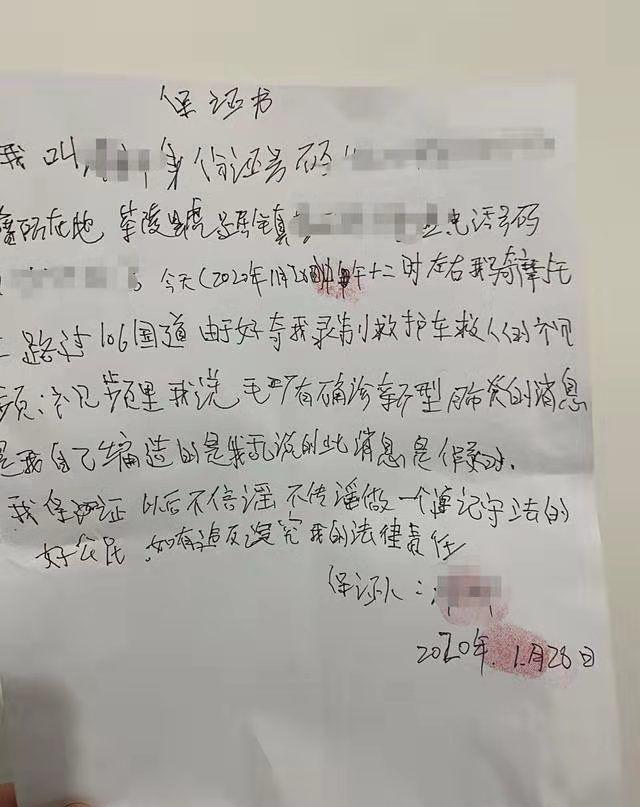 保证书
我叫, 身份证号码
所在地 茶陵县虎踞镇 电话号码
今天(2020年1月28日)中午十二时左右我骑摩托
路过106国道由于好奇我录制救护车救人的视
频:视频里我说毛坪有确诊新型肺炎的消息
是我自己编造的是我乱说的此消息是假的.
我保证以后不信谣不传谣做一个遵纪守法的
好公民.如有违反追究我的法律责任
保证人:
2020年.1月28日